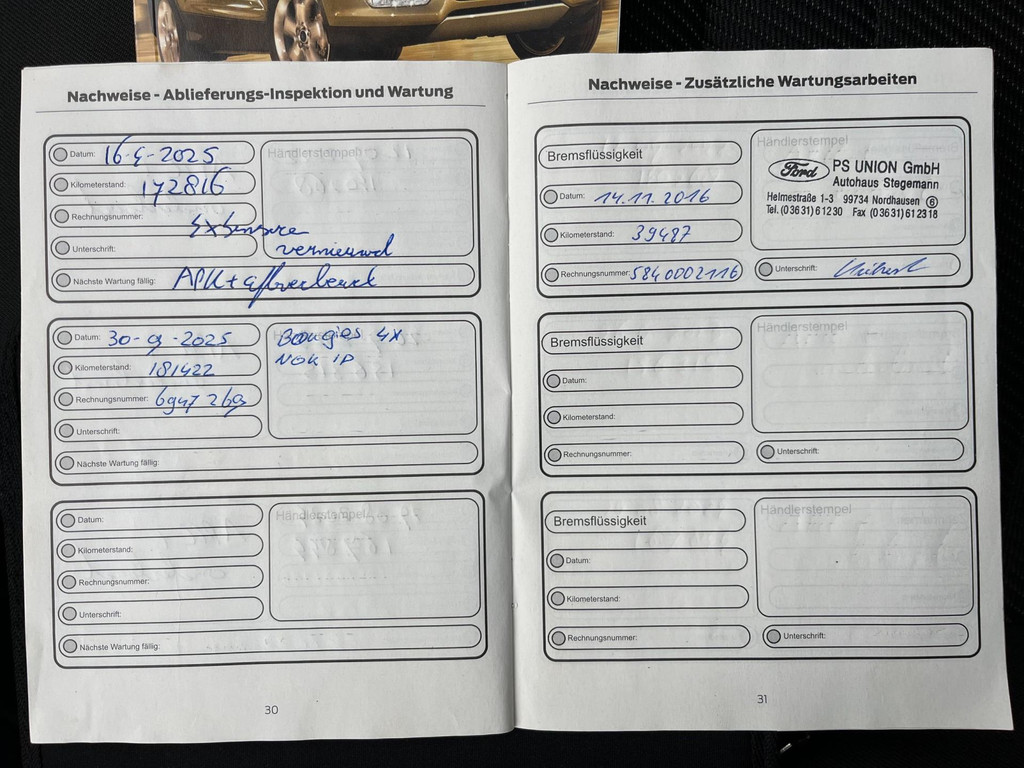 Nachweise - Ablieferungs-Inspektion und Wartung
Datum: 16-4-2025
Händlerstempel
Kilometerstand: 172816
Rechnungsnummer:
4x Sensore
vernieuwd
Unterschrift:
Nächste Wartung fällig: APK +
Datum: 30-9-2025
Händlerstempel
Bougies 4x
Kilometerstand: 181422
NGK IP
Rechnungsnummer: 6947269
Unterschrift:
Nächste Wartung fällig:
Datum:
Händlerstempel
Kilometerstand:
Rechnungsnummer:
Unterschrift:
Nächste Wartung fällig:
30
Nachweise - Zusätzliche Wartungsarbeiten
Bremsflüssigkeit
Händlerstempel
Ford PS UNION GmbH
Autohaus Stegemann
Helmestraße 1-3 99734 Nordhausen 6
Tel. (03631) 61230 Fax (03631) 61 23 18
Datum: 14.11.2016
Kilometerstand: 39487
Rechnungsnummer: 5840002116
Unterschrift:
Bremsflüssigkeit
Händlerstempel
Datum:
Kilometerstand:
Rechnungsnummer:
Unterschrift:
Bremsflüssigkeit
Händlerstempel
Datum:
Kilometerstand:
Rechnungsnummer:
Unterschrift:
31